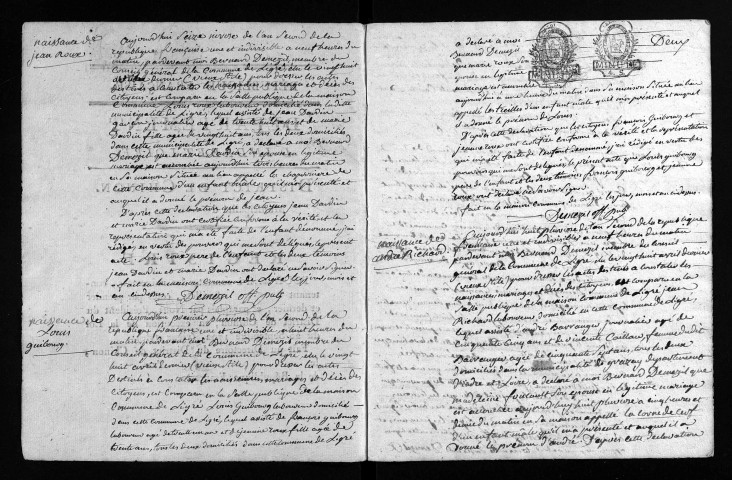 naissance de
jean Roux
aujourd'hui seize nivose de l'an second de la
république françoise une et indivisible a neuf heures du
matin, pardevant moi Bernard Demezil membre du
Conseil general de la Commune de Ligré, élu le vingt huit
destinés a constater les naissances, mariages et décès des
citoyens, est comparu en la salle publique de la maison
Commune Louis roux laboureur domicilié dans la ditte
municipalité de Ligré, lequel assisté de jean Dardin
agé de trente huit ans, et de marie
Dardin fille agée de vingt huit ans, tous les deux domiciliés
dans cette municipalité de Ligré, a declaré a moi Bernard
Demezil que marie Dardin son épouse en legitime
mariage est accouchée aujourd'hui trois heures du matin
en sa maison située au lieu appellé
cette Commune d'un enfant mâle qu'il m'a présenté et
auquel il a donné le prénom de jean.
D'après cette déclaration que les citoyens jean Dardin
et marie Dardin ont certifiée conforme à la vérité et la
représentation qui m'a été faite de l'enfant dénommé, j'ai
rédigé en vertu des pouvoirs qui me sont délégués, le présent
acte. Louis roux père de l'enfant et les deux témoins
jean Dardin et marie Dardin ont déclaré ne savoir signer
fait en la maison Commune de Ligré les jour, mois et
an ci dessus. Demezil off. pub.
naissance de
Louis
guibourg
aujourd'hui premier pluviose de l'an second de la
république françoise une et indivisible a huit heures du
matin pardevant moi Bernard Demezil membre du
Conseil general de la Commune de Ligré élu le vingt
huit avril dernier (vieux stile) pour dresser les actes
Destinés a Constater les naissances, mariages et décès des
Citoyens, est Comparu en la salle publique de la maison
Commune de Ligré Louis guibourg laboureur domicilié
dans cette Commune de Ligré, lequel assisté de françois guibourg
laboureur agé de trente un ans et de jeanne roux fille agée de
trente ans, tous les deux domiciliés dans cette Commune de Ligré
Deux
a déclaré a moi
Bernard Demezil
que marie roux son
épouse en legitime
mariage est accouchée
aujourd'hui une heure du matin dans sa maison située au lieu
appellé les d'un enfant male qu'il m'a présenté et auquel
il a donné le prénom de Louis.
D'après cette déclaration que les citoyens françois Guibourg et
jeanne roux ont certifiée conforme à la vérité et la représentation
qui m'a été faite de l'enfant dénommé j'ai rédigé en vertu des
pouvoirs qui me sont délégués le présent acte que Louis guibourg
père de l'enfant et les deux témoins françois guibourg et jeanne
roux ont déclaré ne savoir signer
fait en la maison commune de Ligré les jour, mois et an ci dessus
Demezil off. pub.
naissance de
andré Richard
aujourd'hui huit pluviose de l'an second de la république
françoise une et indivisible a neuf heures du matin
pardevant moi Bernard Demezil membre du Conseil
general de la Commune de Ligré, élu le vingt huit avril dernier
(vieux stile) pour dresser les actes destinés a constater les
naissances, mariages et décès des citoyens, est comparu en la
salle publique de la maison commune de Ligré jean
Richard laboureur domicilié en cette Commune de Ligré,
lequel assisté d'andré Barranger journalier agé de
cinquante cinq ans et de vincente Caillere, femme dudit
Barranger agée de cinquante sept ans, tous les deux
domiciliés dans la municipalité de département
d'indre et Loire, a déclaré a moi Bernard Demezil que
madeleine foucault son épouse en legitime mariage
est accouchée aujourd'hui huit pluviose a cinq heures et
demie du matin en sa maison appellé la corne de cerf
d'un enfant male qu'il m'a présenté et auquel il a
donné le prénom d'andré. D'après cette déclaration